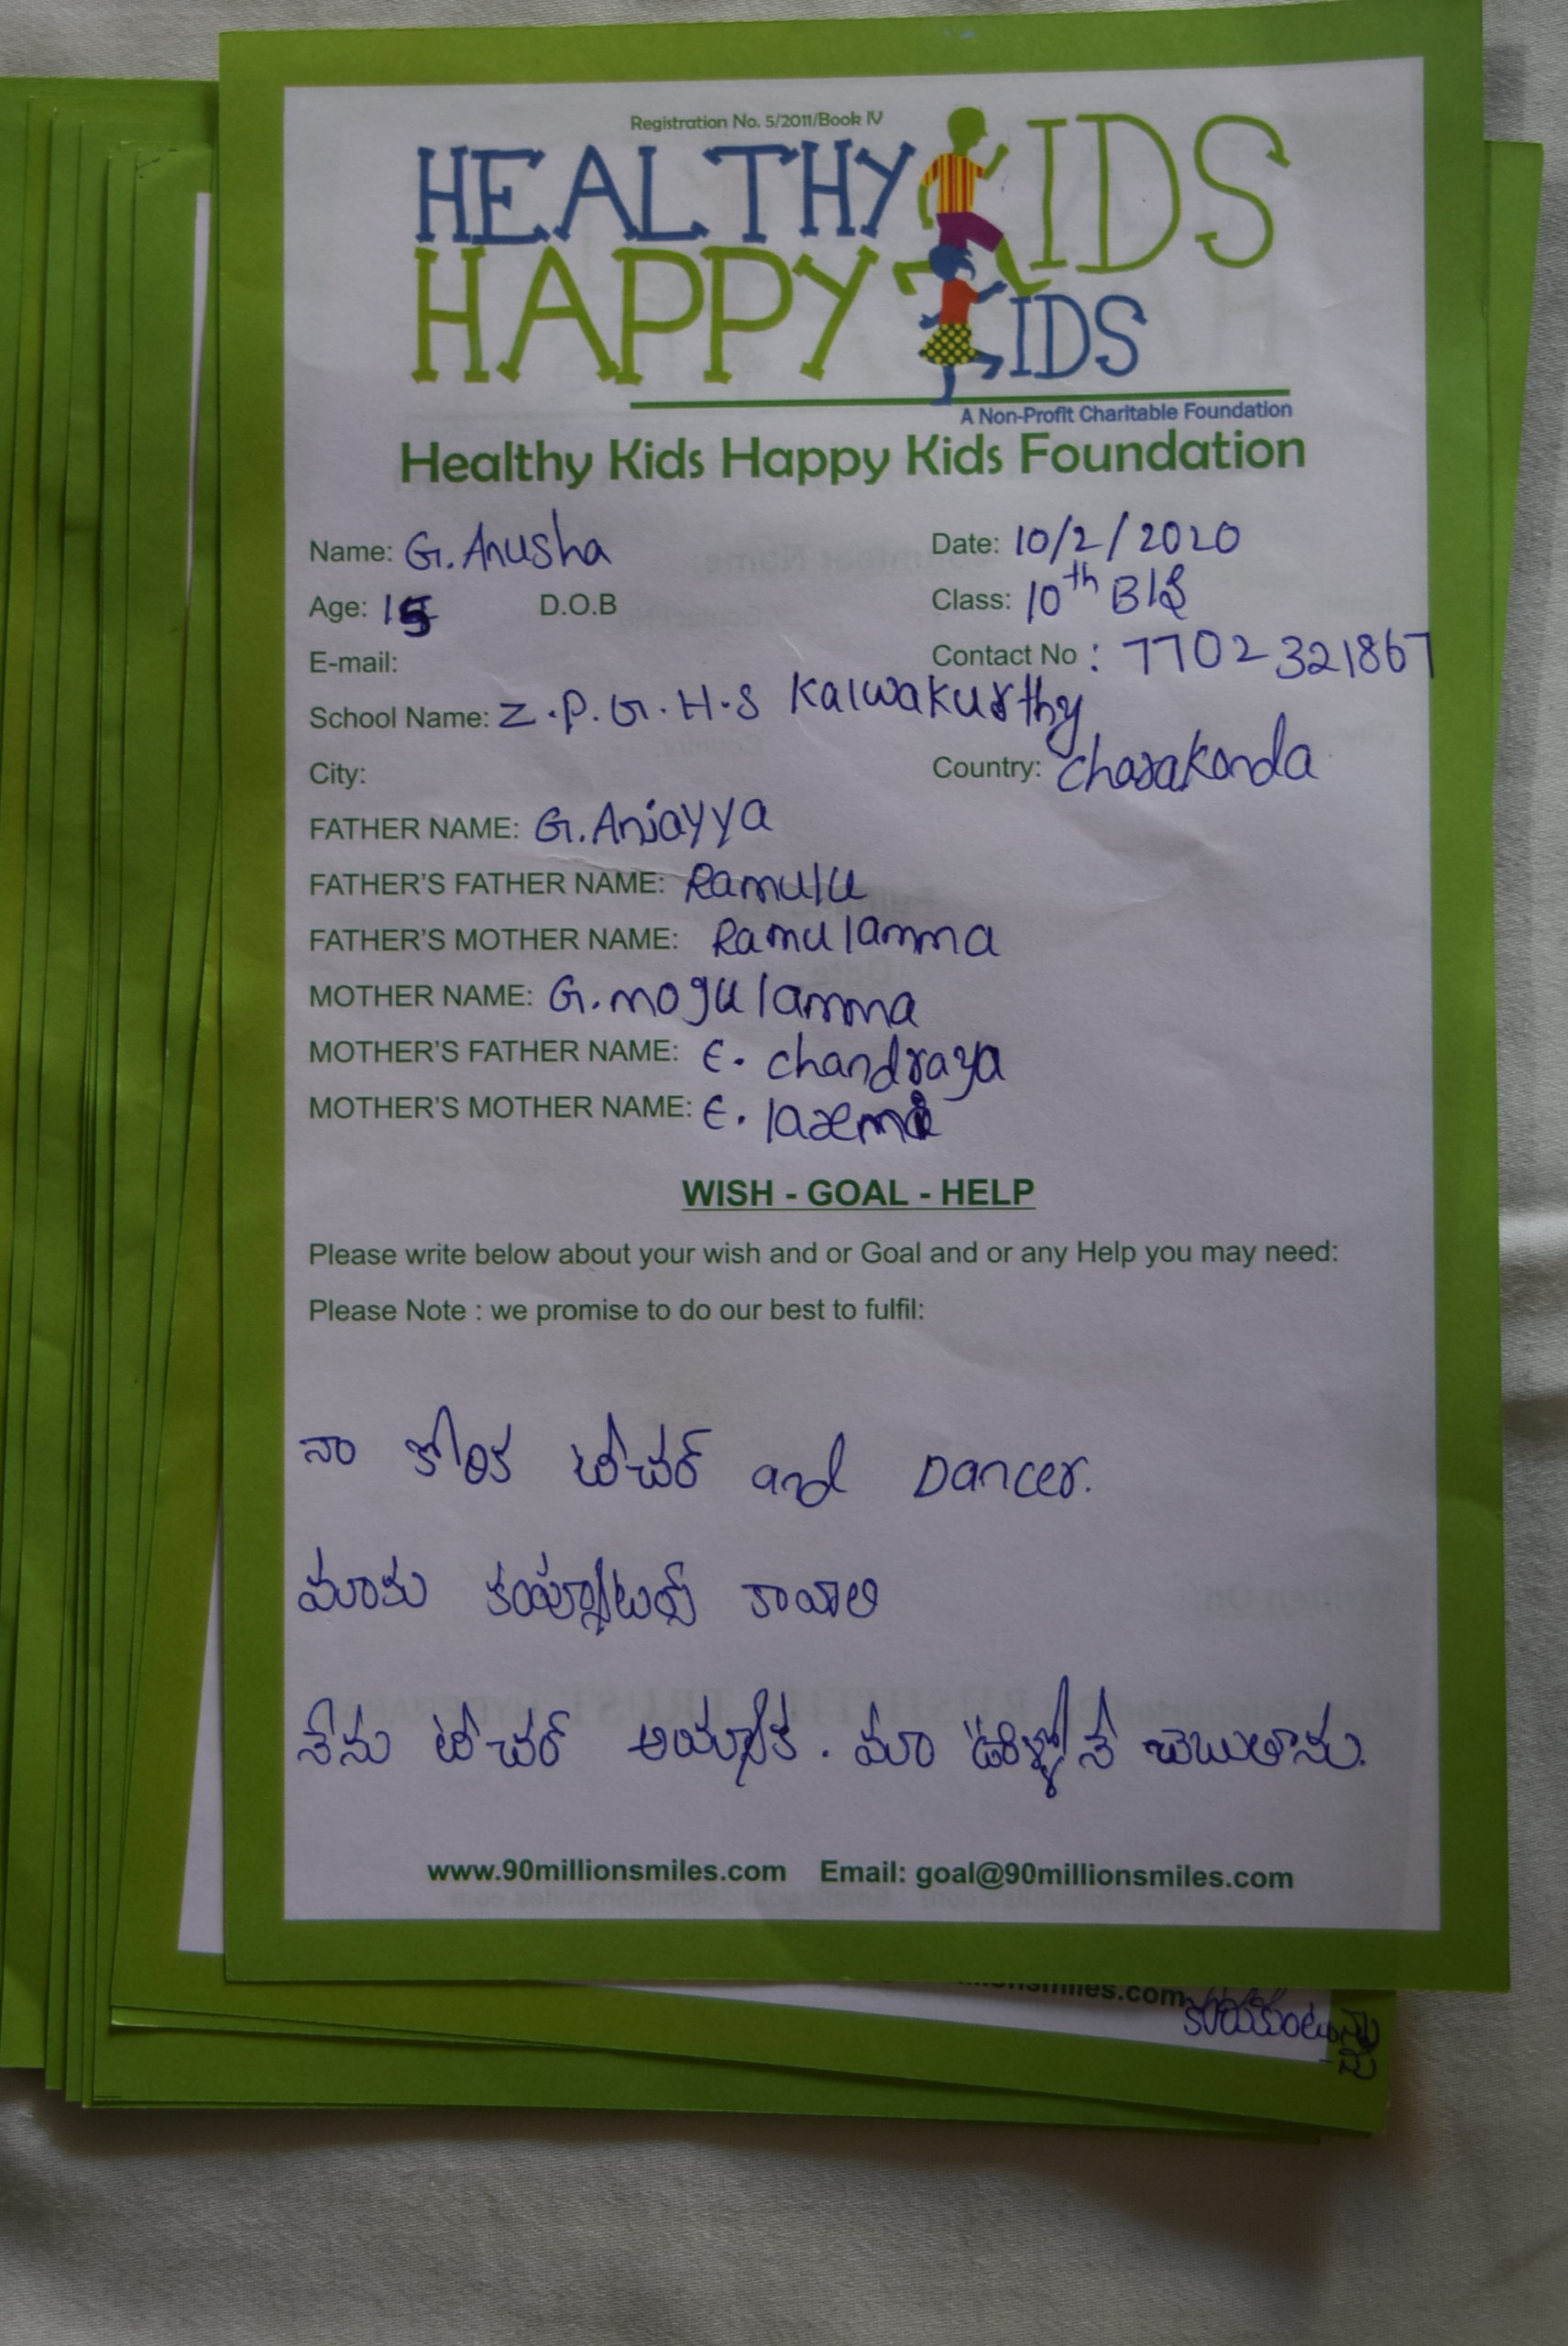 Registration No. 5/2011/Book IV
HEALTHY KIDS
HAPPY KIDS
A Non-Profit Charitable Foundation
Healthy Kids Happy Kids Foundation
Name: G. Anusha Date: 10/2/2020
Age: 15 D.O.B Class: 10th B/S
E-mail: Contact No : 7702321867
School Name: Z.P.G.H.S Kalwakurthy
City: Country: charakonda
FATHER NAME: G. Anjayya
FATHER'S FATHER NAME: Ramulu
FATHER'S MOTHER NAME: Ramulamma
MOTHER NAME: G. mogulamma
MOTHER'S FATHER NAME: E. chandraya
MOTHER'S MOTHER NAME: E.
WISH - GOAL - HELP
Please write below about your wish and or Goal and or any Help you may need:
Please Note : we promise to do our best to fulfil:
నా కోరిక టీచర్ and Dancer.
మాకు కంప్యూటర్స్ కావాలి
నేను టీచర్ అయ్యాక. మా ఊరిళ్ళోనే చెబుతాను.
www.90millionsmiles.com Email: goal@90millionsmiles.com